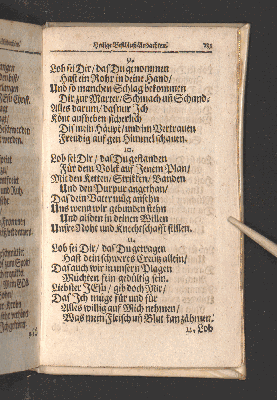 Heilige Beschluß-Andachten/ 731
9.
Lob sei Dir/ das Du genommen
Hast ein Rohr in deine Hand/
Und so manchen Schlag bekommen
Dir zur Marter/ Schmach an Schand.
Alles darum/ daß nur Jch
Könt aufheben sicherlich
Dis mein Haupt/ und im Vertrauen
Freudig auf gen Himmel schauen.
10.
Lob sei Dir/ das Du gestanden
Für dem Volck auf Jenem Plan/
Mit den Ketten/ Strikken/ Banden
Und den Purpur angethan/
Das dein Vater mög ansehn
Uns wenn wir gebunden stehn
Und alsden in deinen Willen
Unsre Noht und Knechtschafft stillen.
11.
Lob sei Dir/ das Du getragen
Hast dein schweres Creutz allein/
Das auch wir in unsern Plagen
Müchten sein gedültig sein.
Liebster JEsu/ gib doch Mir/
Das Jch müge für und für
Alles willig auf Mich nehmen/
Was mein Fleisch uñ Blut kan zähmen.
12. Lob